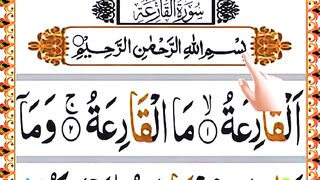 سُوْرَةُ الْقَارِعَةِ
بِسْمِ اللهِ الرَّحْمٰنِ الرَّحِيْمِ
اَلْقَارِعَةُ ۙ﴿۱﴾ مَا الْقَارِعَةُ ۚ﴿۲﴾ وَمَاۤ